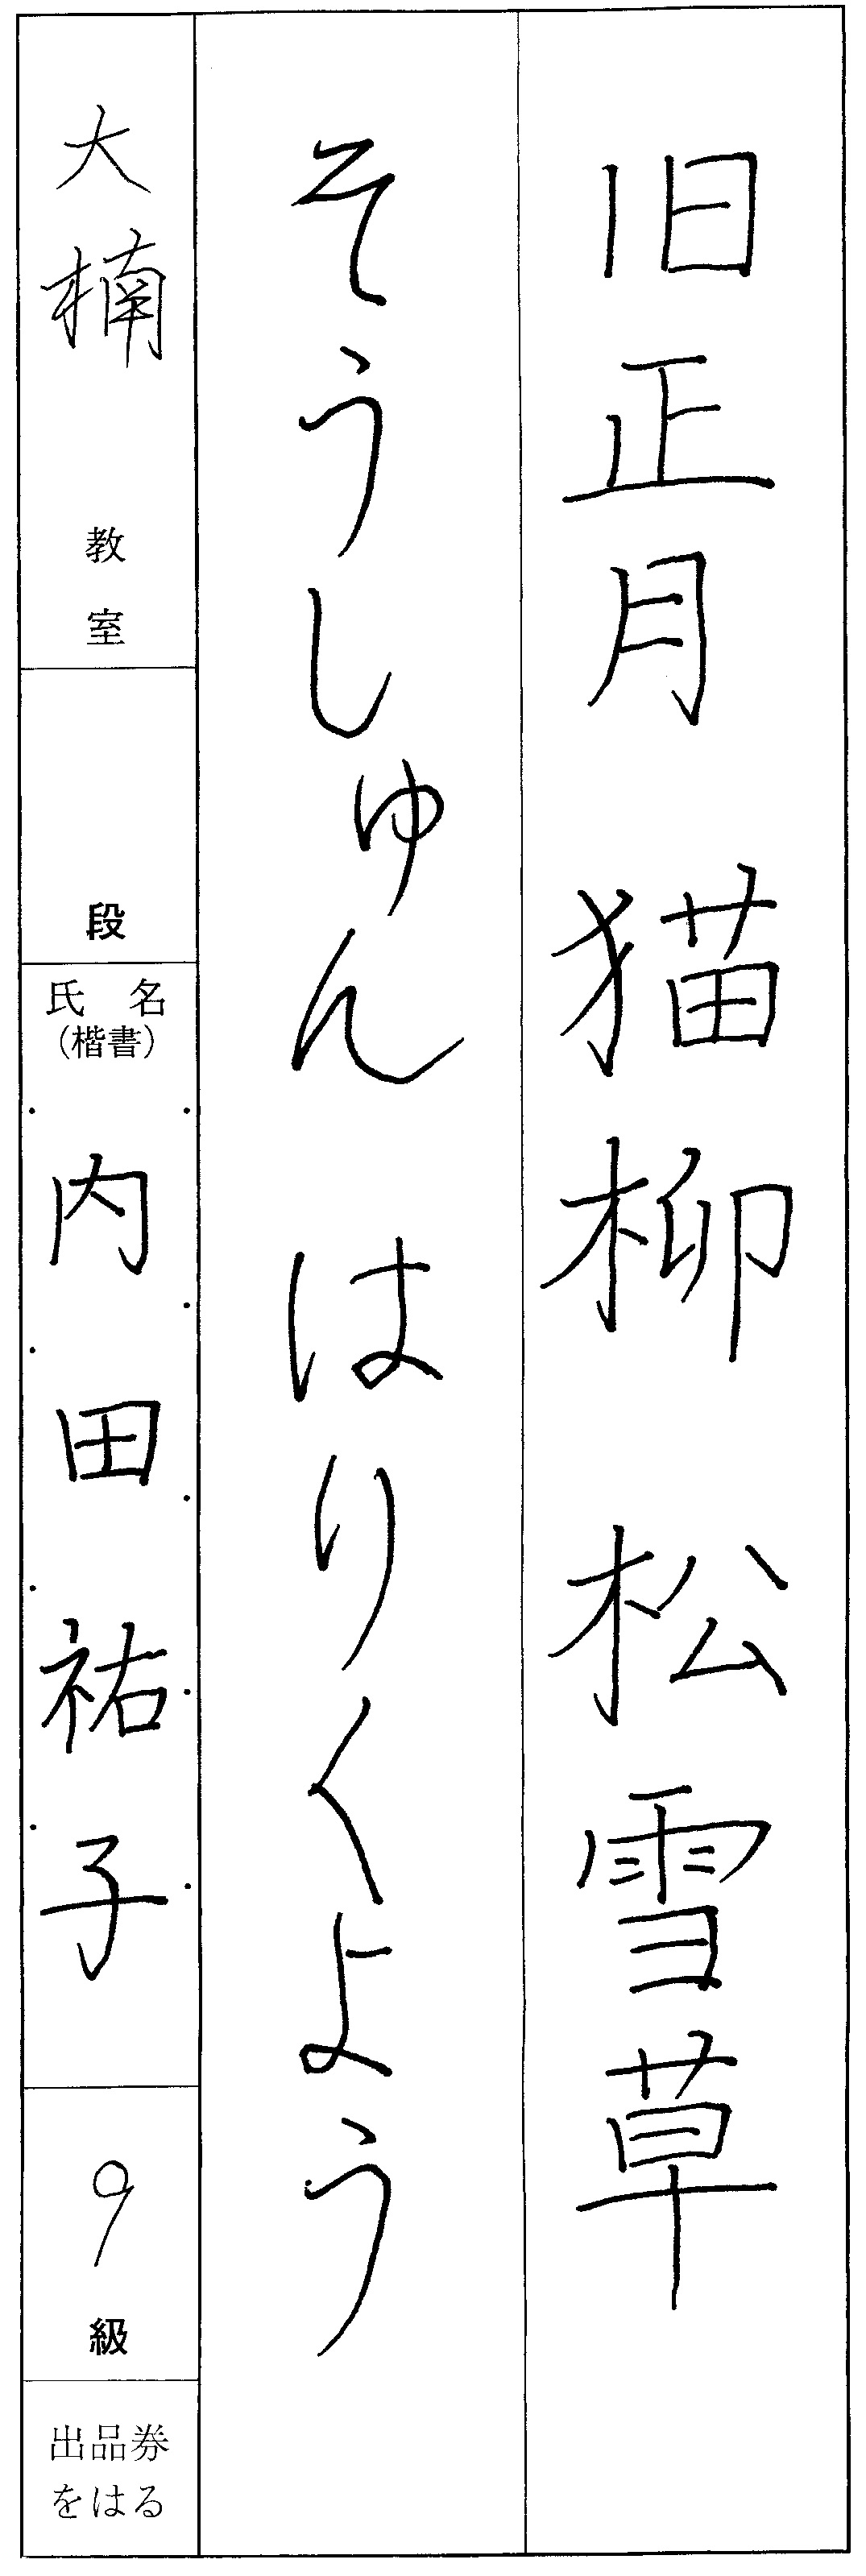 旧正月 猫柳 松雪草
そうしゅん はりくよう
大楠 教室
段
氏名
(楷書)
内田祐子
9 級
出品券
をはる